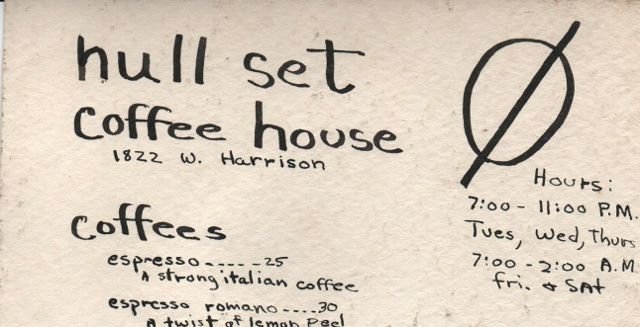 hull set
coffee house
1822 W. Harrison
Ø
Hours:
7:00 - 11:00 P.M.
Tues, Wed, Thurs
7:00 - 2:00 A.M
fri. & SAt
coffees
espresso ----- 25
A strong italian coffee
espresso romano ---- 30
A twist of lemon peel